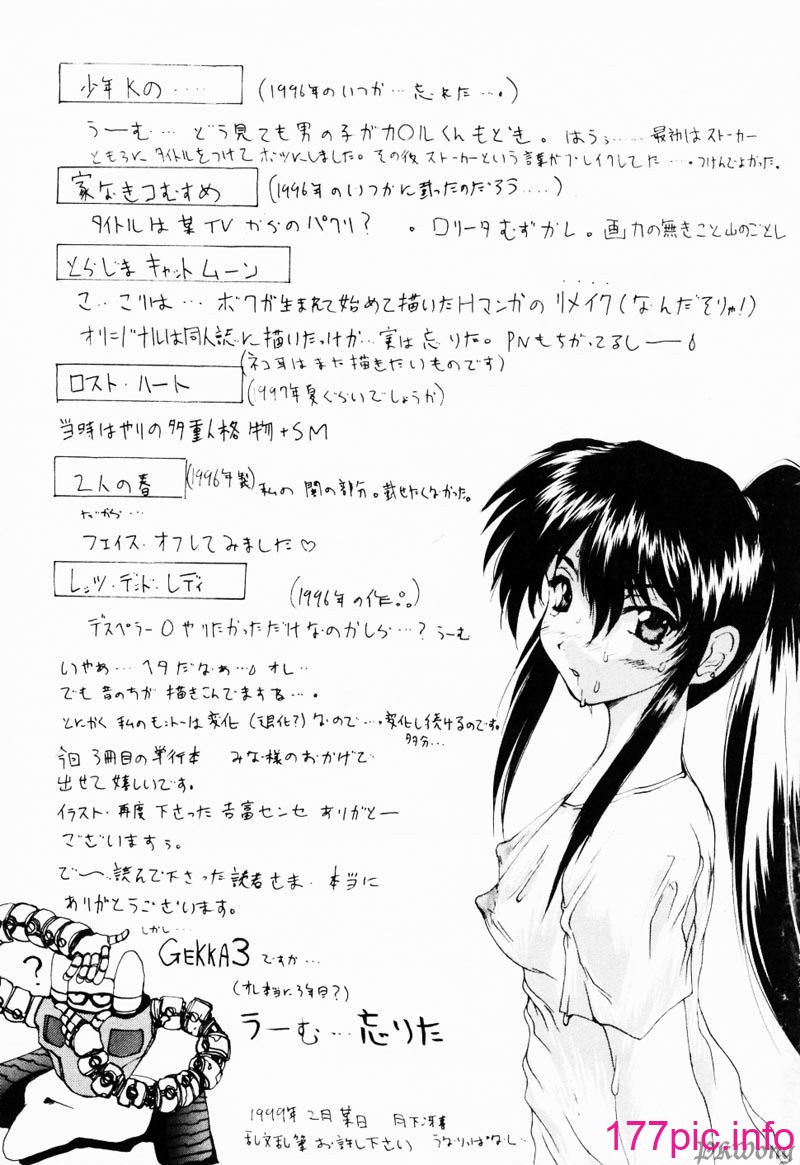 少年Kの‥‥ (1996年のいつか…忘れた…。)
うーむ… どう見ても男の子がカ○ルくんもどき。はうぅ…… 最初はストーカー
ともろにタイトルをつけてボツにしました。その後ストーカーという言葉がブレイクしてた…。つけんでよかった。
家なきコむすめ (1996年のいつかに載ったのだろう‥‥)
タイトルは某TVからのパクリ? 。ロリータむずかし。画力の無きこと山のごとし
とらじまキャットムーン
こ‥こりは… ボクが生まれて始めて描いたHマンガのリメイク(なんだそりゃ!)
オリジナルは同人誌に描いたっけか…実は忘りた。PNもちがってるし──
(ネコ耳はまた描きたいものです)
ロスト・ハート (1997年夏ぐらいでしょうか)
当時はやりの多重人格物+SM
2人の春 (1996年製) 私の闇の部分。載せたくなかった。
だから…
フェイス・オフしてみました♡
レッツ・デッド・レディ (1996年の作。)
デスペラー○やりたかっただけなのかしら…? うーむ
いやぁ… ヘタだなぁ… オレ…
でも昔のちが描きこんでますね…。
とにかく私のモットーは変化(退化?)なので…。変化し続けるのです。
多分…
今回3冊目の単行本 みな様のおかげで
出せて嬉しいです。
イラスト・再度下さった吉富センセ ありがとー
ございますぅ。
で〜、読んで下さった読者さま、本当に
ありがとうございます。
しかし…
GEKKA3ですか…
(オレ本当に3年目?)
?
うーむ…忘りた
1999年2月某日 月下冴喜
乱文乱筆お許し下さい うなりっぱなし…
177pic.info